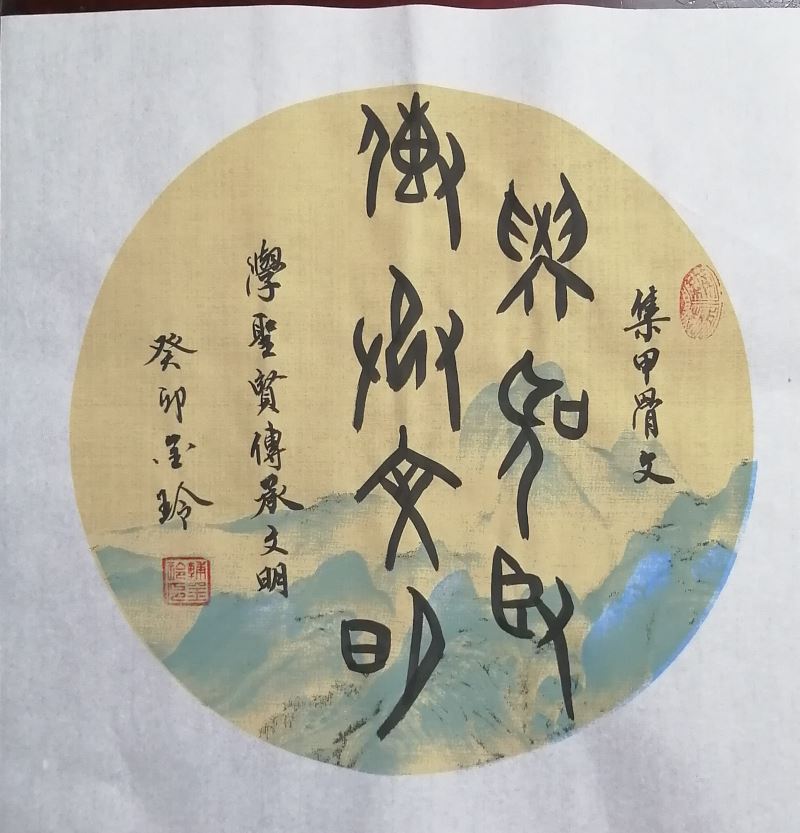 集甲骨文
學聖臤
傳承文明
學聖賢傳承文明
癸卯金玲